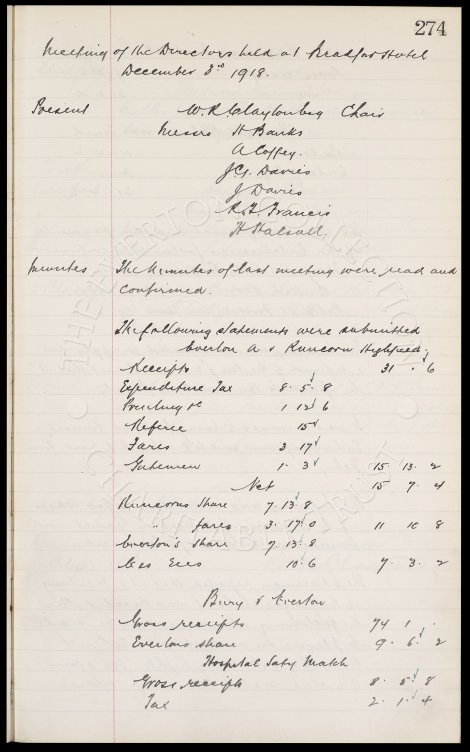 274
Meeting of the Directors held at Bradford Hotel
December 3rd 1918.
Present W.R. Clayton Esq Chair
Messrs H Banks
A Coffey.
J.G. Davies
J Davies
R.F. Francis
H Halsall.
Minutes The Minutes of last meeting were read and
confirmed.
The following statements were submitted
Everton A v Runcorn Highfield.
Receipts 31 . 6
Expenditure Tax 8 . 5 . 8
Printing &c 1 12 6
Referee 15
Fares 3 17
Gatemen 1 . 3 15 . 13 . 2
Net 15 7 . 4
Runcorns Share 7 . 13 . 8
" fares 3 . 17 0 11 10 8
Everton's Share 7 . 13 . 8
Less Exes 10 . 6 7 . 3 . 2
Bury v Everton
Gross receipts 74 1 .
Evertons share 9 . 6 . 2
Hospital Saty Match
Gross receipts 8 . 5 . 8
Tax 2 . 1 . 4
THE EVERTON COLLECTION
CHARITABLE TRUST